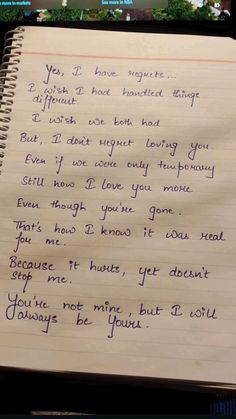 See more in NBA
Yes, I have regrets...
I wish I had handled things
different
I wish we both had
But, I don't regret loving you.
Even if we were only temporary
Still now I love you more
Even though you're gone.
That's how I know it was real
for me.
Because it hurts, yet doesn't
stop me.
You're not mine, but I will
always be Yours.